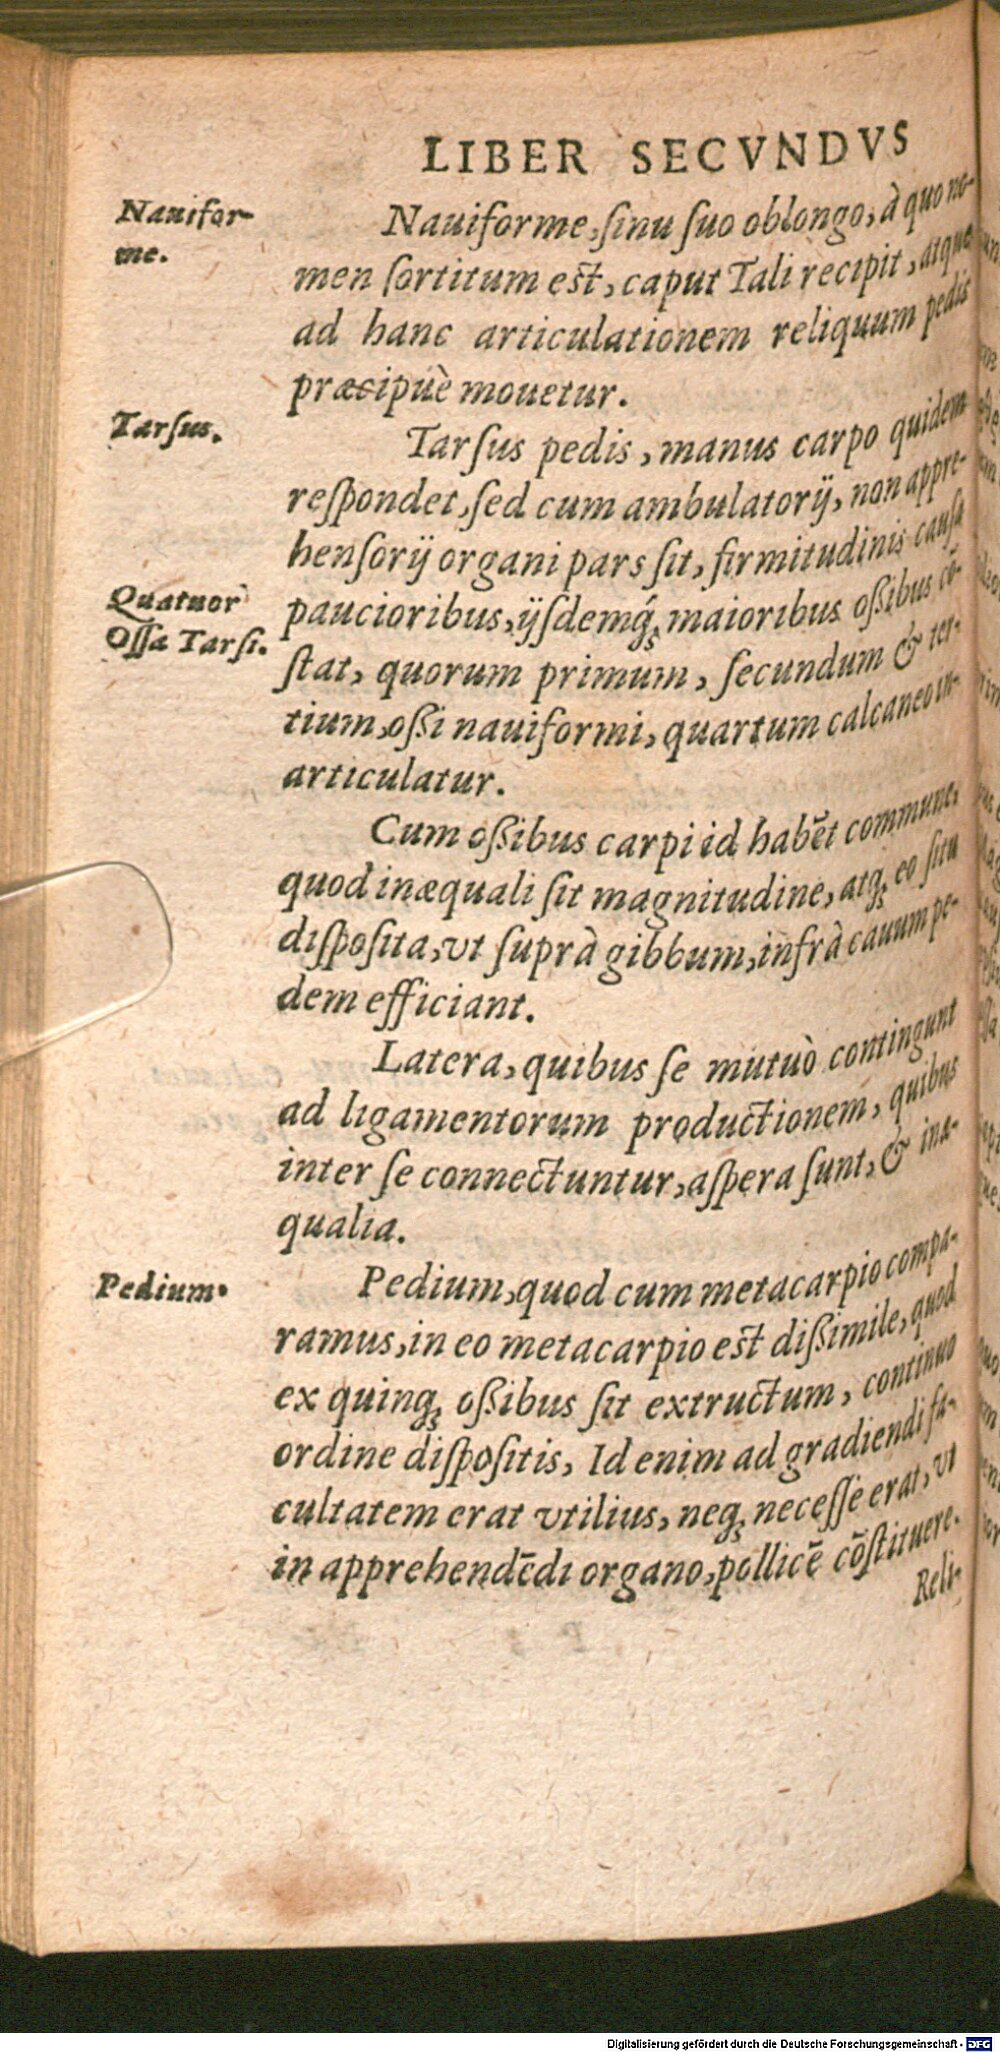 LIBER SECVNDVS
Nauifor-
me.
Nauiforme, ſinu ſuo oblongo, à quo no-
men ſortitum eſt, caput Tali recipit, atque
ad hanc articulationem reliquum pedis
præcipuè mouetur.
Tarſus.
Tarſus pedis, manus carpo quidem
reſpondet, ſed cum ambulatorij, non appre-
henſorij organi pars ſit, firmitudinis cauſa
Quatuor
Oſſa Tarſi.
paucioribus, ijſdemq́; maioribus oſsibus cō-
ſtat, quorum primum, ſecundum & ter-
tium, oſsi nauiformi, quartum calcaneo in-
articulatur.
Cum oſsibus carpi id habēt commune,
quod inæquali ſit magnitudine, atq; eo ſitu
diſpoſita, vt ſuprà gibbum, infrà cauum pe-
dem efficiant.
Latera, quibus ſe mutuò contingunt
ad ligamentorum productionem, quibus
inter ſe connectuntur, aſpera ſunt, & inæ-
qualia.
Pedium.
Pedium, quod cum metacarpio compa-
ramus, in eo metacarpio eſt diſsimile, quod
ex quinq; oſsibus ſit extructum, continuo
ordine diſpoſitis, Id enim ad gradiendi fa-
cultatem erat vtilius, neq; neceſſe erat, vt
in apprehendēdi organo, pollicē cōſtituere.
Reli-
Digitalisierung gefördert durch die Deutsche Forschungsgemeinschaft - DFG